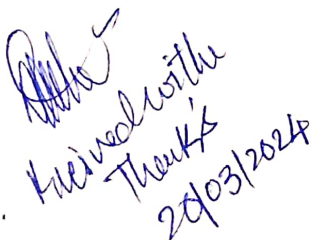 Received withe
Thank's
20/03/2024